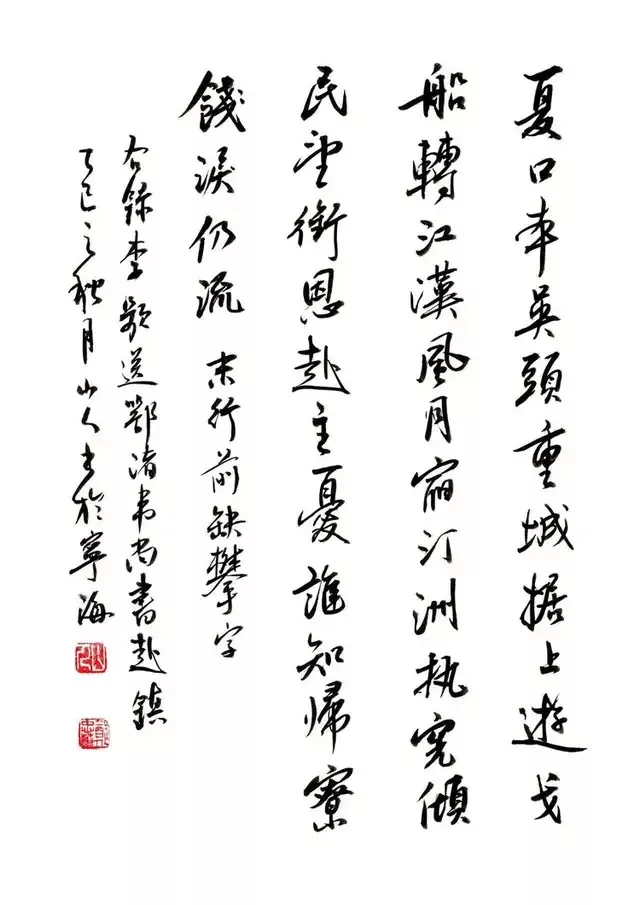 夏口本吳頭重城据上遊戈
船轉江漢風月宿汀洲執憲傾
民望銜恩赴主憂誰知歸寮
餞淚仍流 末行前缺攀字
右錄李頻送鄂渚韋尚書赴鎮
乙巳之秋月山人書於寧海